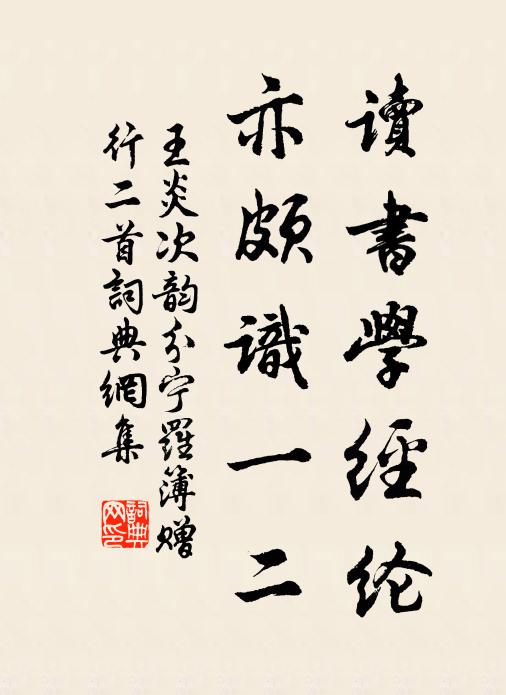 讀書學經纶
亦頗識一二
王炎次韵分宁羅簿赠
行二首詞典網集
詞典网印